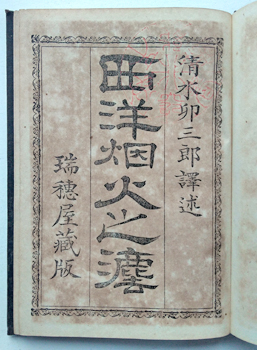 清水卯三郎譯述
西洋烟火之法
瑞穗屋藏版